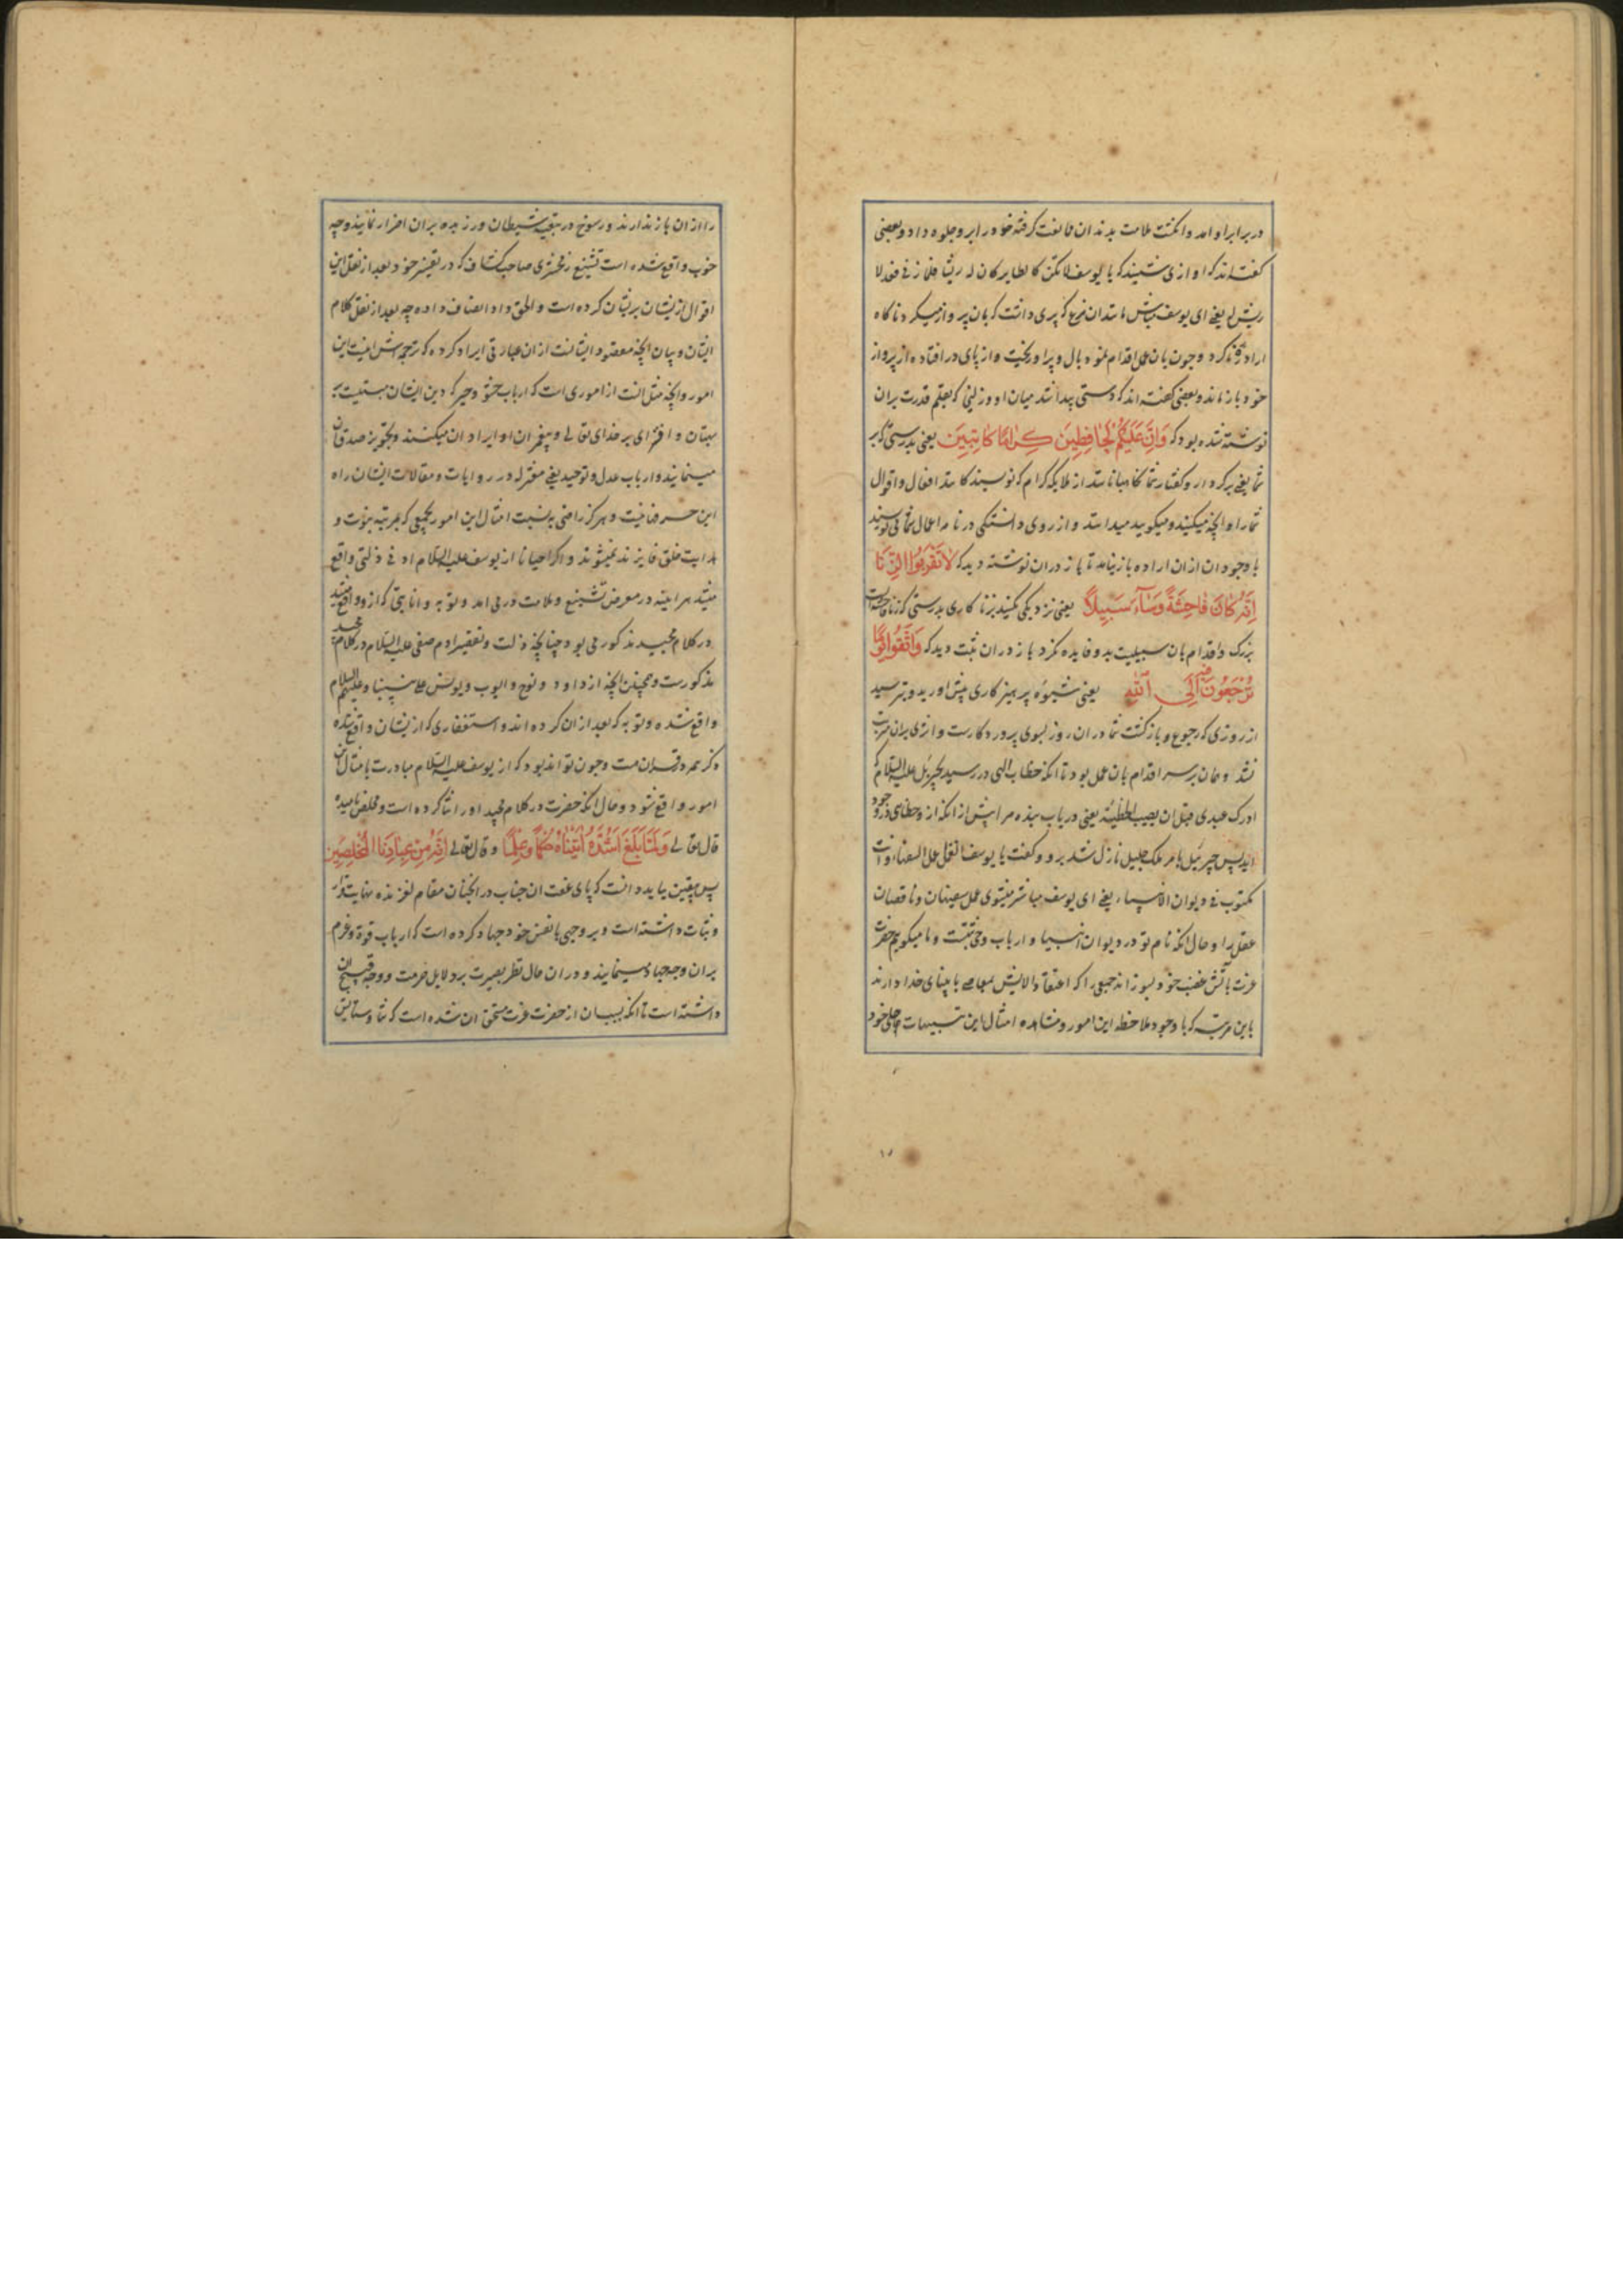 در برابر او امد و انکشت ملامت بدندان ممانعت کرفته خود را برو جلوه داد و بعضی
کفته‌اند که اوازی شنیند که یا یوسف لا تکن کالطایر کان له ریشا فلما زنی فقد لا
ریش له یعنی ای یوسف مباش مانند ان مرغ که پری داشت که بان پرواز میکرد ناکاه
اراده زنا کرد و چون بان عمل اقدام نمود بال و پر او ریخت و از پای در افتاده از پرواز
خود بازماند و بعضی کفته‌اند که دستی پیدا شد میان او و زلیخا که بقلم قدرت بران
نوشته شده بود که وَاِنَّ عَلَیْکُمْ لَحٰافِظِینَ کِرٰامًا کٰاتِبِینَ یعنی بدرستی که بر
شما یعنی بر کردار و کفتار شما نکاهبانانند از ملایکه کرام که نویسندکانند افعال و اقوال
شما را و انچه میکنید و میکویید میدانند و از روی دانستکی در نامه اعمال شما می نویسند
با وجود ان ازان اراده باز نیامد تا باز دران نوشته دید که لٰا تَقْرَبُوا الزِّنٰا
اِنَّهُ کٰانَ فٰاحِشَةً وَسَآءَ سَبِیلاً یعنی نزدیکی مکنید بزنا کاری بدرستی که زنا فاحشه‌ایست
بزرک و اقدام بان سبیلیست بد و فایده نکرد باز دران ثبت دید که وَاتَّقُوا یَوْمًا
تُرْجَعُونَ فِیهِ اِلَی اللّٰهِ یعنی شیوه پرهیز کاری پیش اورید و بترسید
از روزی که رجوع و بازکشت شما دران روز بسوی پروردکارست و اثری بران مترتب
نشد و همان بر سر اقدام بان عمل بود تا انکه خطاب الهی در رسید بجبرئیل علیه السّلام که
ادرک عبدی قبل ان یصیب الخطیئة یعنی دریاب بنده مرا پیش از انکه ازو خطای در وجود
اید پس جبرئیل بامر ملک جلیل نازل شد برو و کفت یا یوسف اتعمل عمل السفهاء و انت
مکتوب فی دیوان الانبیاء یعنی ای یوسف مباشر میشوی عمل سفیهان و ناقصان
عقل را و حال انکه نام تو در دیوان انبیا و ارباب وحی ثبتست و ما میکوییم حضرت
عزت باتش غضب خود بسوزاند جمعی را که اعتقاد الایش معاصی بانبیای خدا دارند
باین مرتبه که با وجود ملاحظه این امور و مشاهده امثال این تنبیهات جلی خود
را ازان باز ندارند و رسوخ در تبعیت شیطان ورزیده بران اصرار نمایند و چه
خوب واقع شده است تشنیع زمخشری صاحب کشاف که در تفسیر خود بعد از نقل این
اقوال ازیشان بریشان کرده است و الحق داد انصاف داده چه بعد از نقل کلام
ایشان و بیان انچه مقصود ایشانست ازان عبارتی ایراد کرده که ترجمه‌اش اینست این
امور و انچه مثل انست از اموری است که ارباب حشو و جبر که دین ایشان مبتنیست بر
بهتان و افترای بر خدای تعالی و پیغمبران او ایراد ان میکنند و تجویز صدق ان
مینمایند و ارباب عدل و توحید یعنی معتزله در روایات و مقالات ایشان راه
این حرفها نیست و هرکز راضی به نسبت امثال این امور بجمعی که بمرتبه نبوت و
هدایت خلق فایزند نمیشوند و اکر احیانا از یوسف علیه السّلام ادنی ذلتی واقع
میشد هر اینه در معرض تشنیع و ملامت درمی امد و توبه و انابتی که ازو واقع میشد
در کلام مجید مذکور می بود چنانچه ذلت و تقصیر ادم صفی علیه السّلام در کلام مجید
مذکورست و همچنین انچه از داود و نوح و ایوب و یونس علی نبینا و علیهم السلام
واقع شده و توبه که بعد ازان کرده‌اند و استغفاری که ازیشان واقع شده
ذکر همه در قران هست و چون تواند بود که از یوسف علیه السّلام مبادرت بامثال این
امور واقع شود و حال انکه حضرت در کلام مجید او را ثنا کرده است و مخلص نامیده
قال تعالی وَلَمّٰا بَلَغَ اَشُدَّهُ اٰتَیْنٰاهُ حُکْمًا وَعِلْمًا و قال تعالی اِنَّهُ مِنْ عِبٰادِنَا الْمُخْلَصِینَ
پس بیقین باید دانست که پای عفت ان جناب در انچنان مقام لغزنده نهایت قرار
و ثبات داشته است و بر وجهی با نفس خود جهاد کرده است که ارباب قوة و عزم
بران وجه جهاد مینمایند و دران حال نظر بصیرت بر دلایل حرمت و وجه قبح ان
داشته است تا انکه بسبب ان از حضرت عزت مستحق ان شده است که ثنا و ستایش
۱۵